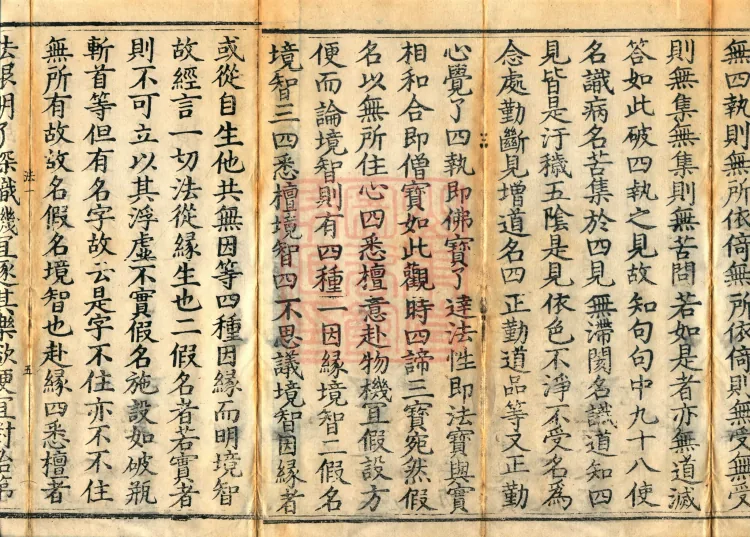 無四執則無所依倚無所依倚則無受無受
則無集無集則無苦問若如是者亦無道滅
答如此破四執之見故知句句中九十八使
名識病名苦集於四見無滯閡名識道知四
見皆是汙穢五陰是見依色不淨不受名為
念處勤斷見增道名四正勤道品等又正勤
心覺了四執即佛寶了達法性即法寶與實
相和合即僧寶如此觀時四諦三寶宛然假
名以無所住心四悉檀意赴物機宜假設方
便而論境智則有四種一因緣境智二假名
境智三四悉檀境智四不思議境智因緣者
或從自生他共無因等四種因緣而明境智
故經言一切法從緣生也二假名者若實者
則不可立以其浮虛不實假名施設如破瓶
斬首等但有名字故云是字不住亦不不住
無所有故故名假名境智也赴緣四悉檀者
法一
五
法眼明了深識機宜逐其樂欲便宜對治第